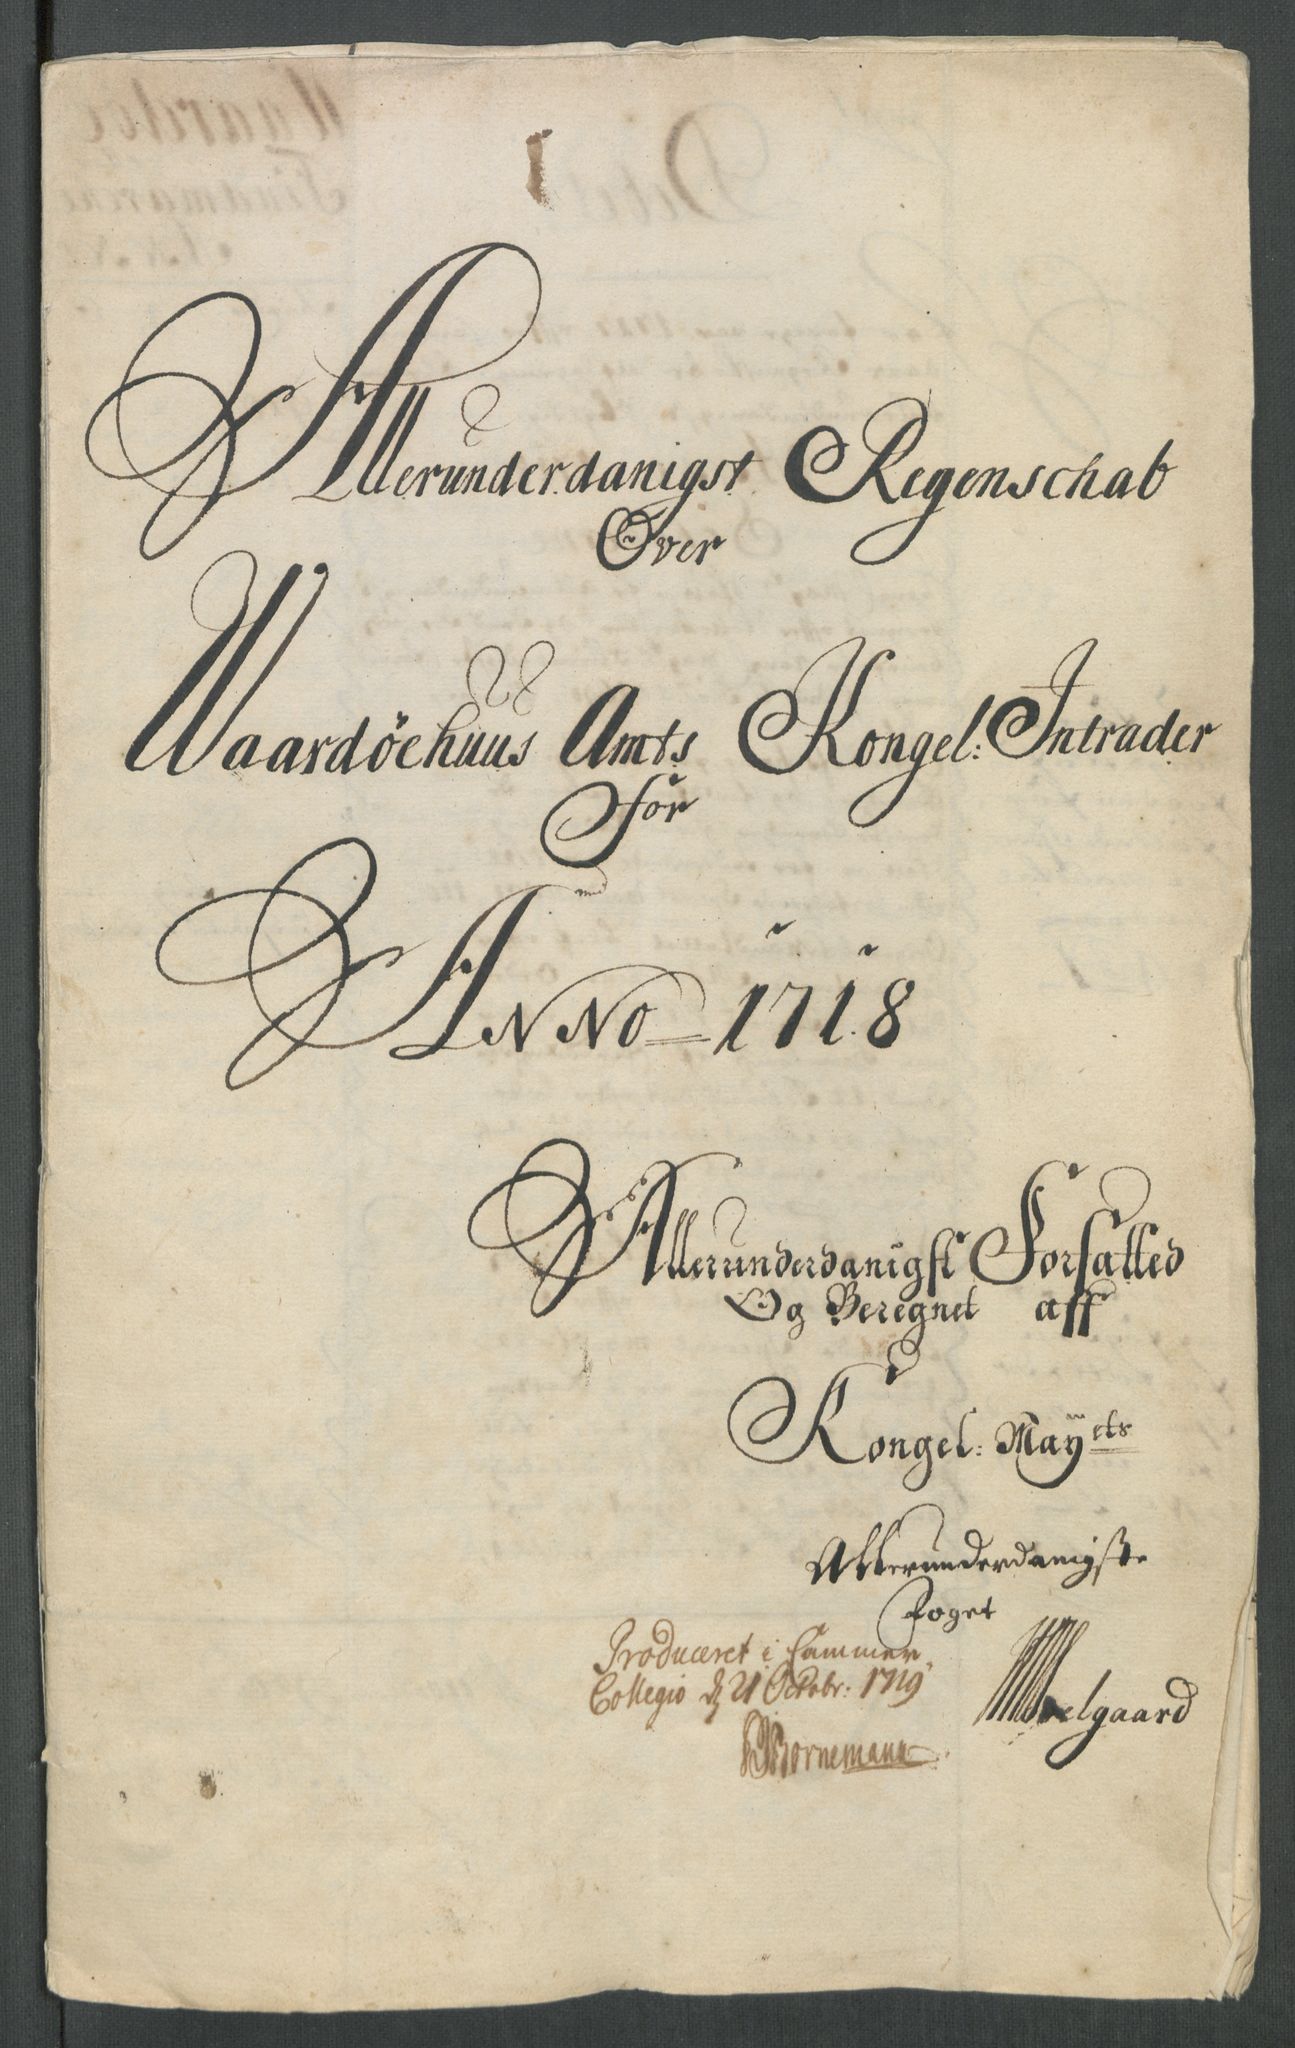 Allerunderdanigst Regenschab
Over
Waardöehuus Amts Kongel: Intrader
for
ANNO 1718
Allerunderdanigst Forfatted
Og Beregnet aff
Kongel: Mayets
Allerunderdanigste
Foget
Produceret i Cammer
Collegio d 21 Octobr: 1719
Bornemann